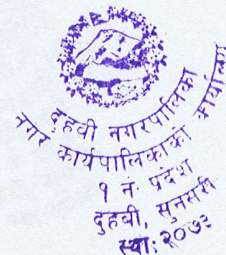 दुहवी नगरपालिका
नगर कार्यपालिकाको कार्यालय
१ नं प्रदेश
दुहवी, सुनसरी
स्था: २०७३